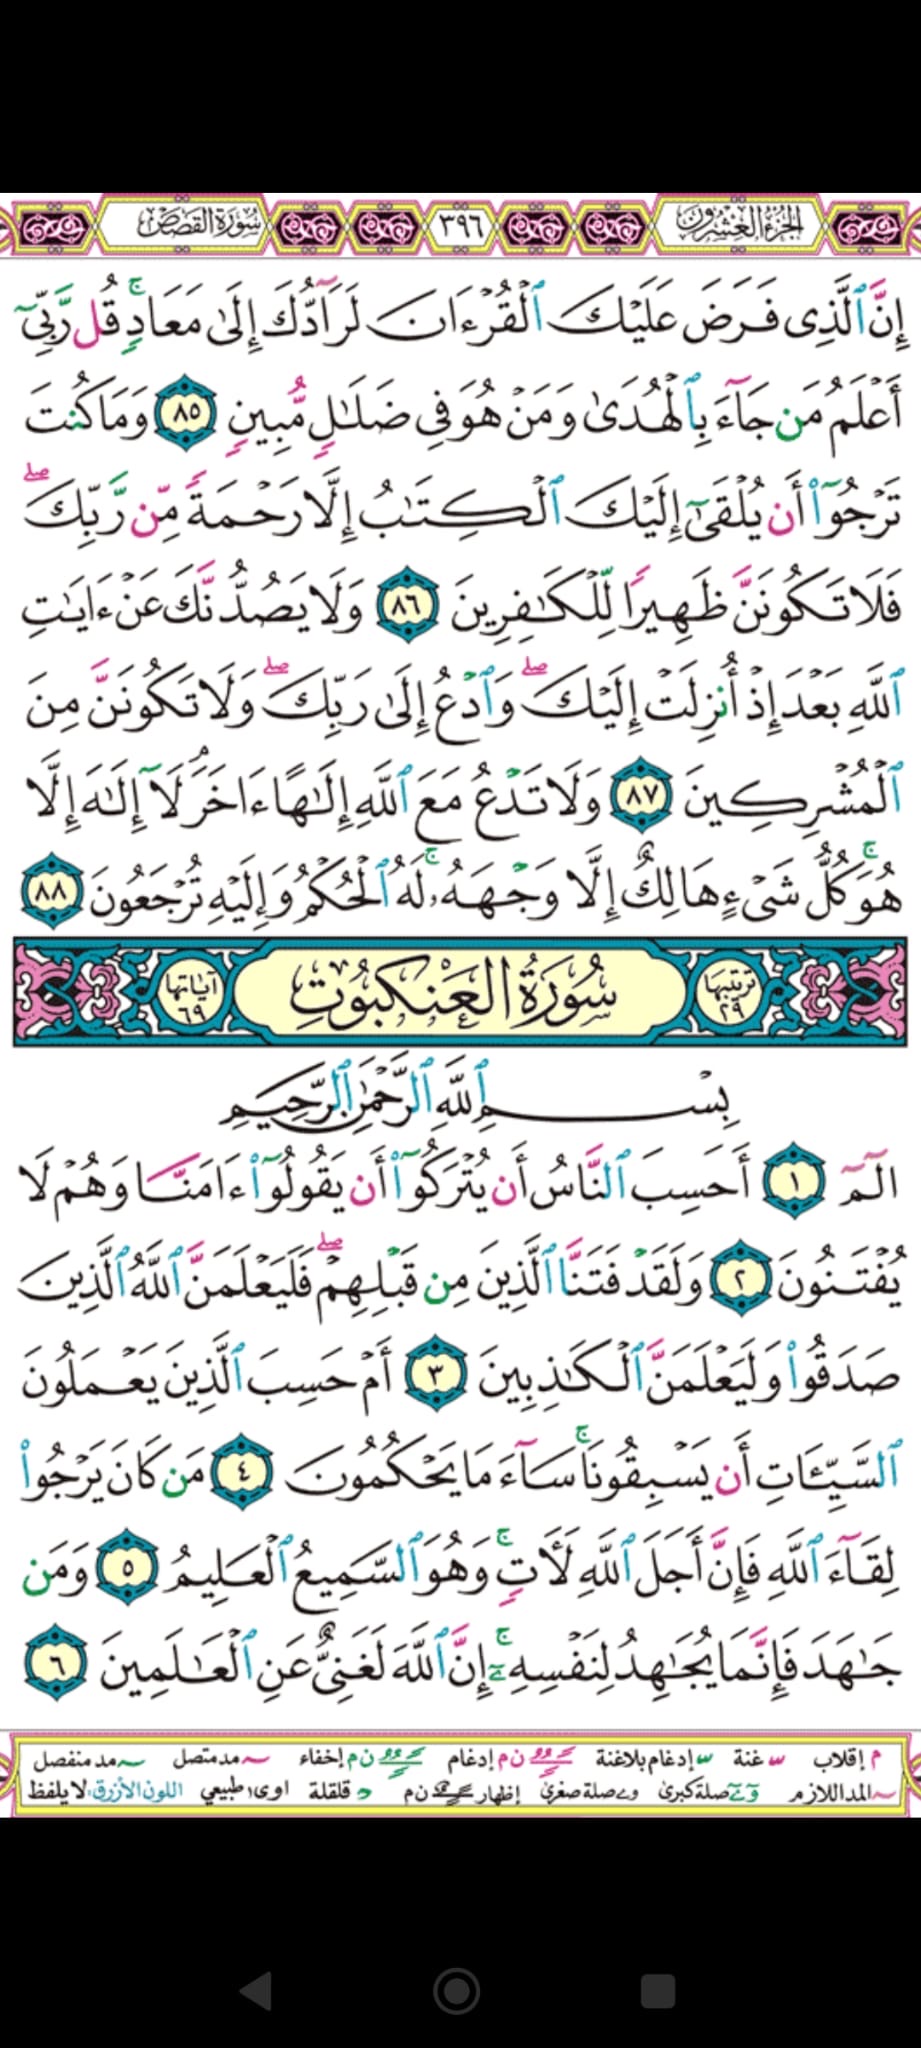 الجزء العشرون ٣٩٦ سورة القصص
إِنَّ ٱلَّذِى فَرَضَ عَلَيْكَ ٱلْقُرْءَانَ لَرَآدُّكَ إِلَىٰ مَعَادٍۚ قُل رَّبِّىٓ
أَعْلَمُ مَن جَآءَ بِٱلْهُدَىٰ وَمَنْ هُوَ فِى ضَلَٰلٍ مُّبِينٍ ٨٥ وَمَا كُنتَ
تَرْجُوٓا۟ أَن يُلْقَىٰٓ إِلَيْكَ ٱلْكِتَٰبُ إِلَّا رَحْمَةً مِّن رَّبِّكَۖ
فَلَا تَكُونَنَّ ظَهِيرًا لِّلْكَٰفِرِينَ ٨٦ وَلَا يَصُدُّنَّكَ عَنْ ءَايَٰتِ
ٱللَّهِ بَعْدَ إِذْ أُنزِلَتْ إِلَيْكَۖ وَٱدْعُ إِلَىٰ رَبِّكَۖ وَلَا تَكُونَنَّ مِنَ
ٱلْمُشْرِكِينَ ٨٧ وَلَا تَدْعُ مَعَ ٱللَّهِ إِلَٰهًا ءَاخَرَۘ لَآ إِلَٰهَ إِلَّا
هُوَۚ كُلُّ شَىْءٍ هَالِكٌ إِلَّا وَجْهَهُۥۚ لَهُ ٱلْحُكْمُ وَإِلَيْهِ تُرْجَعُونَ ٨٨
ترتيبها ٢٩ سُورَةُ العَنكَبُوتِ آياتها ٦٩
بِسْمِ ٱللَّهِ ٱلرَّحْمَٰنِ ٱلرَّحِيمِ
الٓمٓ ١ أَحَسِبَ ٱلنَّاسُ أَن يُتْرَكُوٓا۟ أَن يَقُولُوٓا۟ ءَامَنَّا وَهُمْ لَا
يُفْتَنُونَ ٢ وَلَقَدْ فَتَنَّا ٱلَّذِينَ مِن قَبْلِهِمْۖ فَلَيَعْلَمَنَّ ٱللَّهُ ٱلَّذِينَ
صَدَقُوا۟ وَلَيَعْلَمَنَّ ٱلْكَٰذِبِينَ ٣ أَمْ حَسِبَ ٱلَّذِينَ يَعْمَلُونَ
ٱلسَّيِّـَٔاتِ أَن يَسْبِقُونَاۚ سَآءَ مَا يَحْكُمُونَ ٤ مَن كَانَ يَرْجُوا۟
لِقَآءَ ٱللَّهِ فَإِنَّ أَجَلَ ٱللَّهِ لَـَٔاتٍۚ وَهُوَ ٱلسَّمِيعُ ٱلْعَلِيمُ ٥ وَمَن
جَٰهَدَ فَإِنَّمَا يُجَٰهِدُ لِنَفْسِهِۦٓۚ إِنَّ ٱللَّهَ لَغَنِىٌّ عَنِ ٱلْعَٰلَمِينَ ٦
م إقلاب غنة إدغام بلاغنة ن م إدغام ن م إخفاء مد متصل مد منفصل
المد اللازم صلة كبرى صلة صغرى إظهار ن م قلقلة اوى طبيعي اللون الأزرق: لا يلفظ